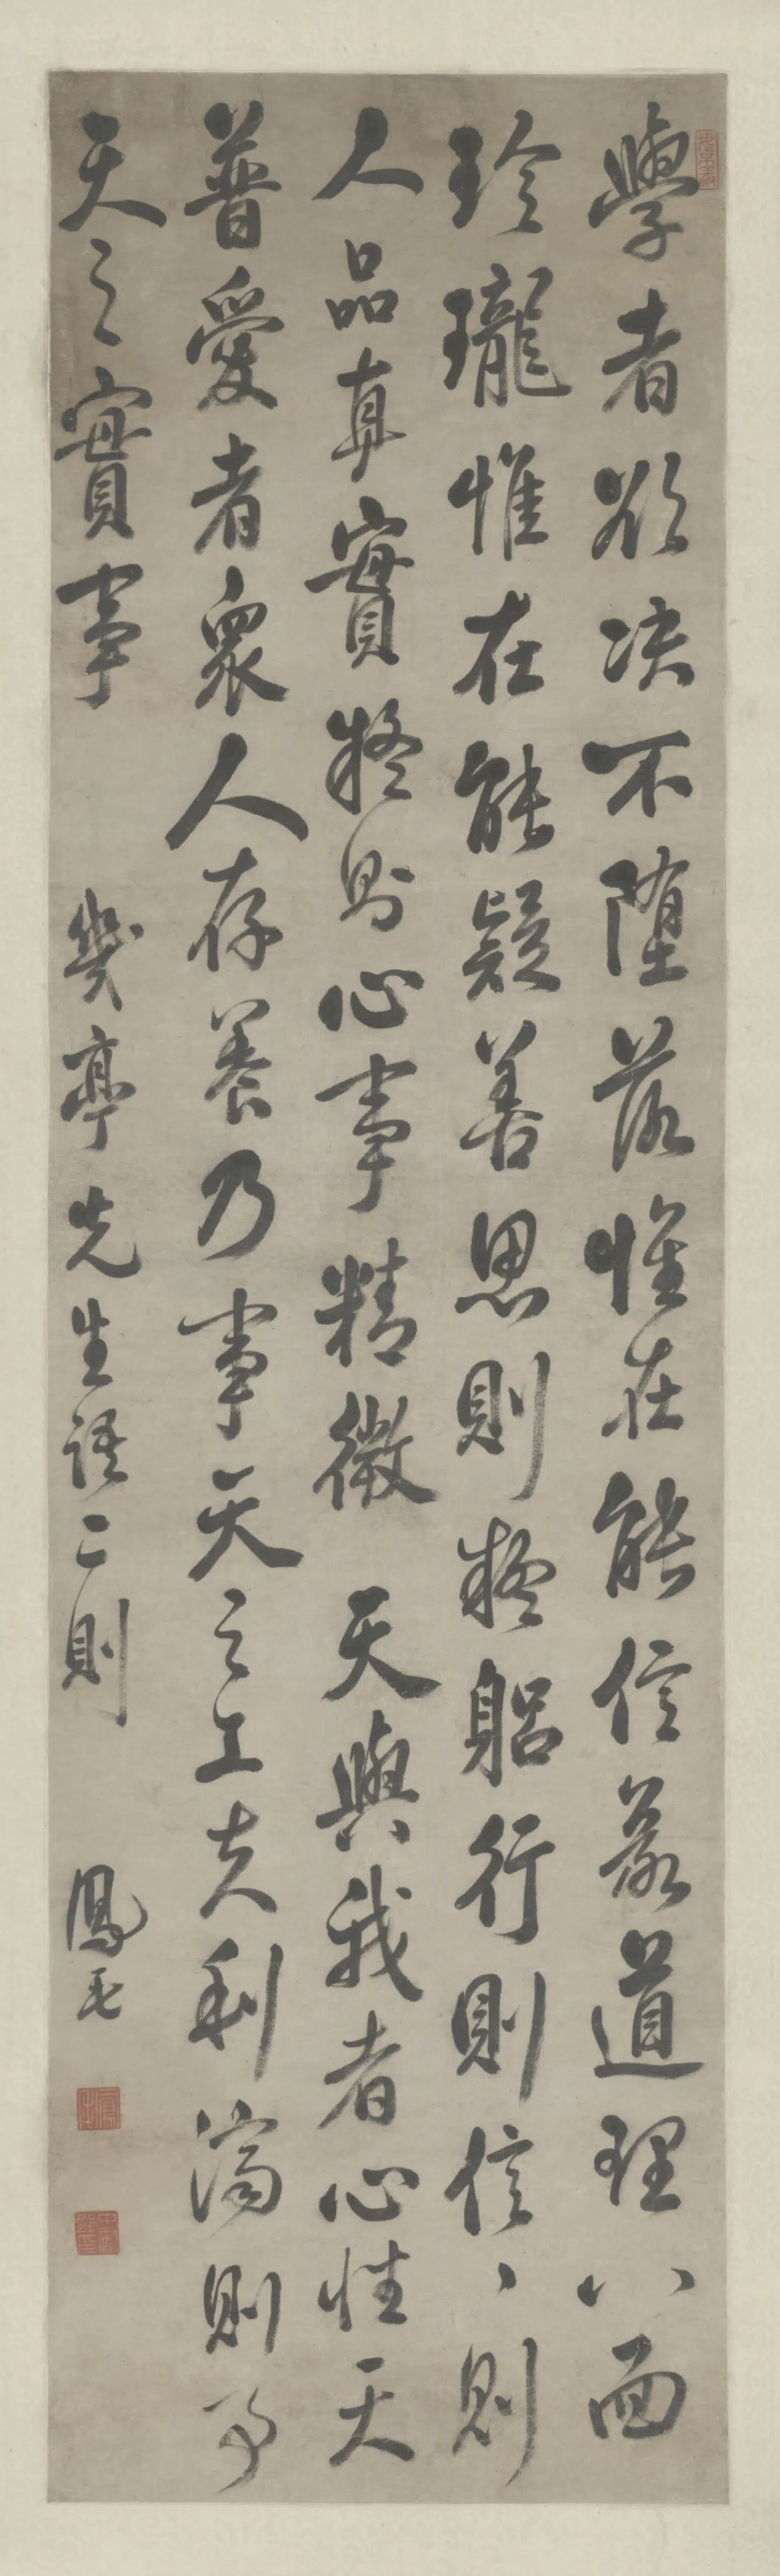 學者欲決不墮落惟在能信義道理八面
玲瓏惟在能疑善思則疑躬行則信、則
人品真實疑則心事精微 天與我者心性天
普愛者眾人存養乃事天之工夫利濟則事
天之實事 幾亭先生語二則 鳳